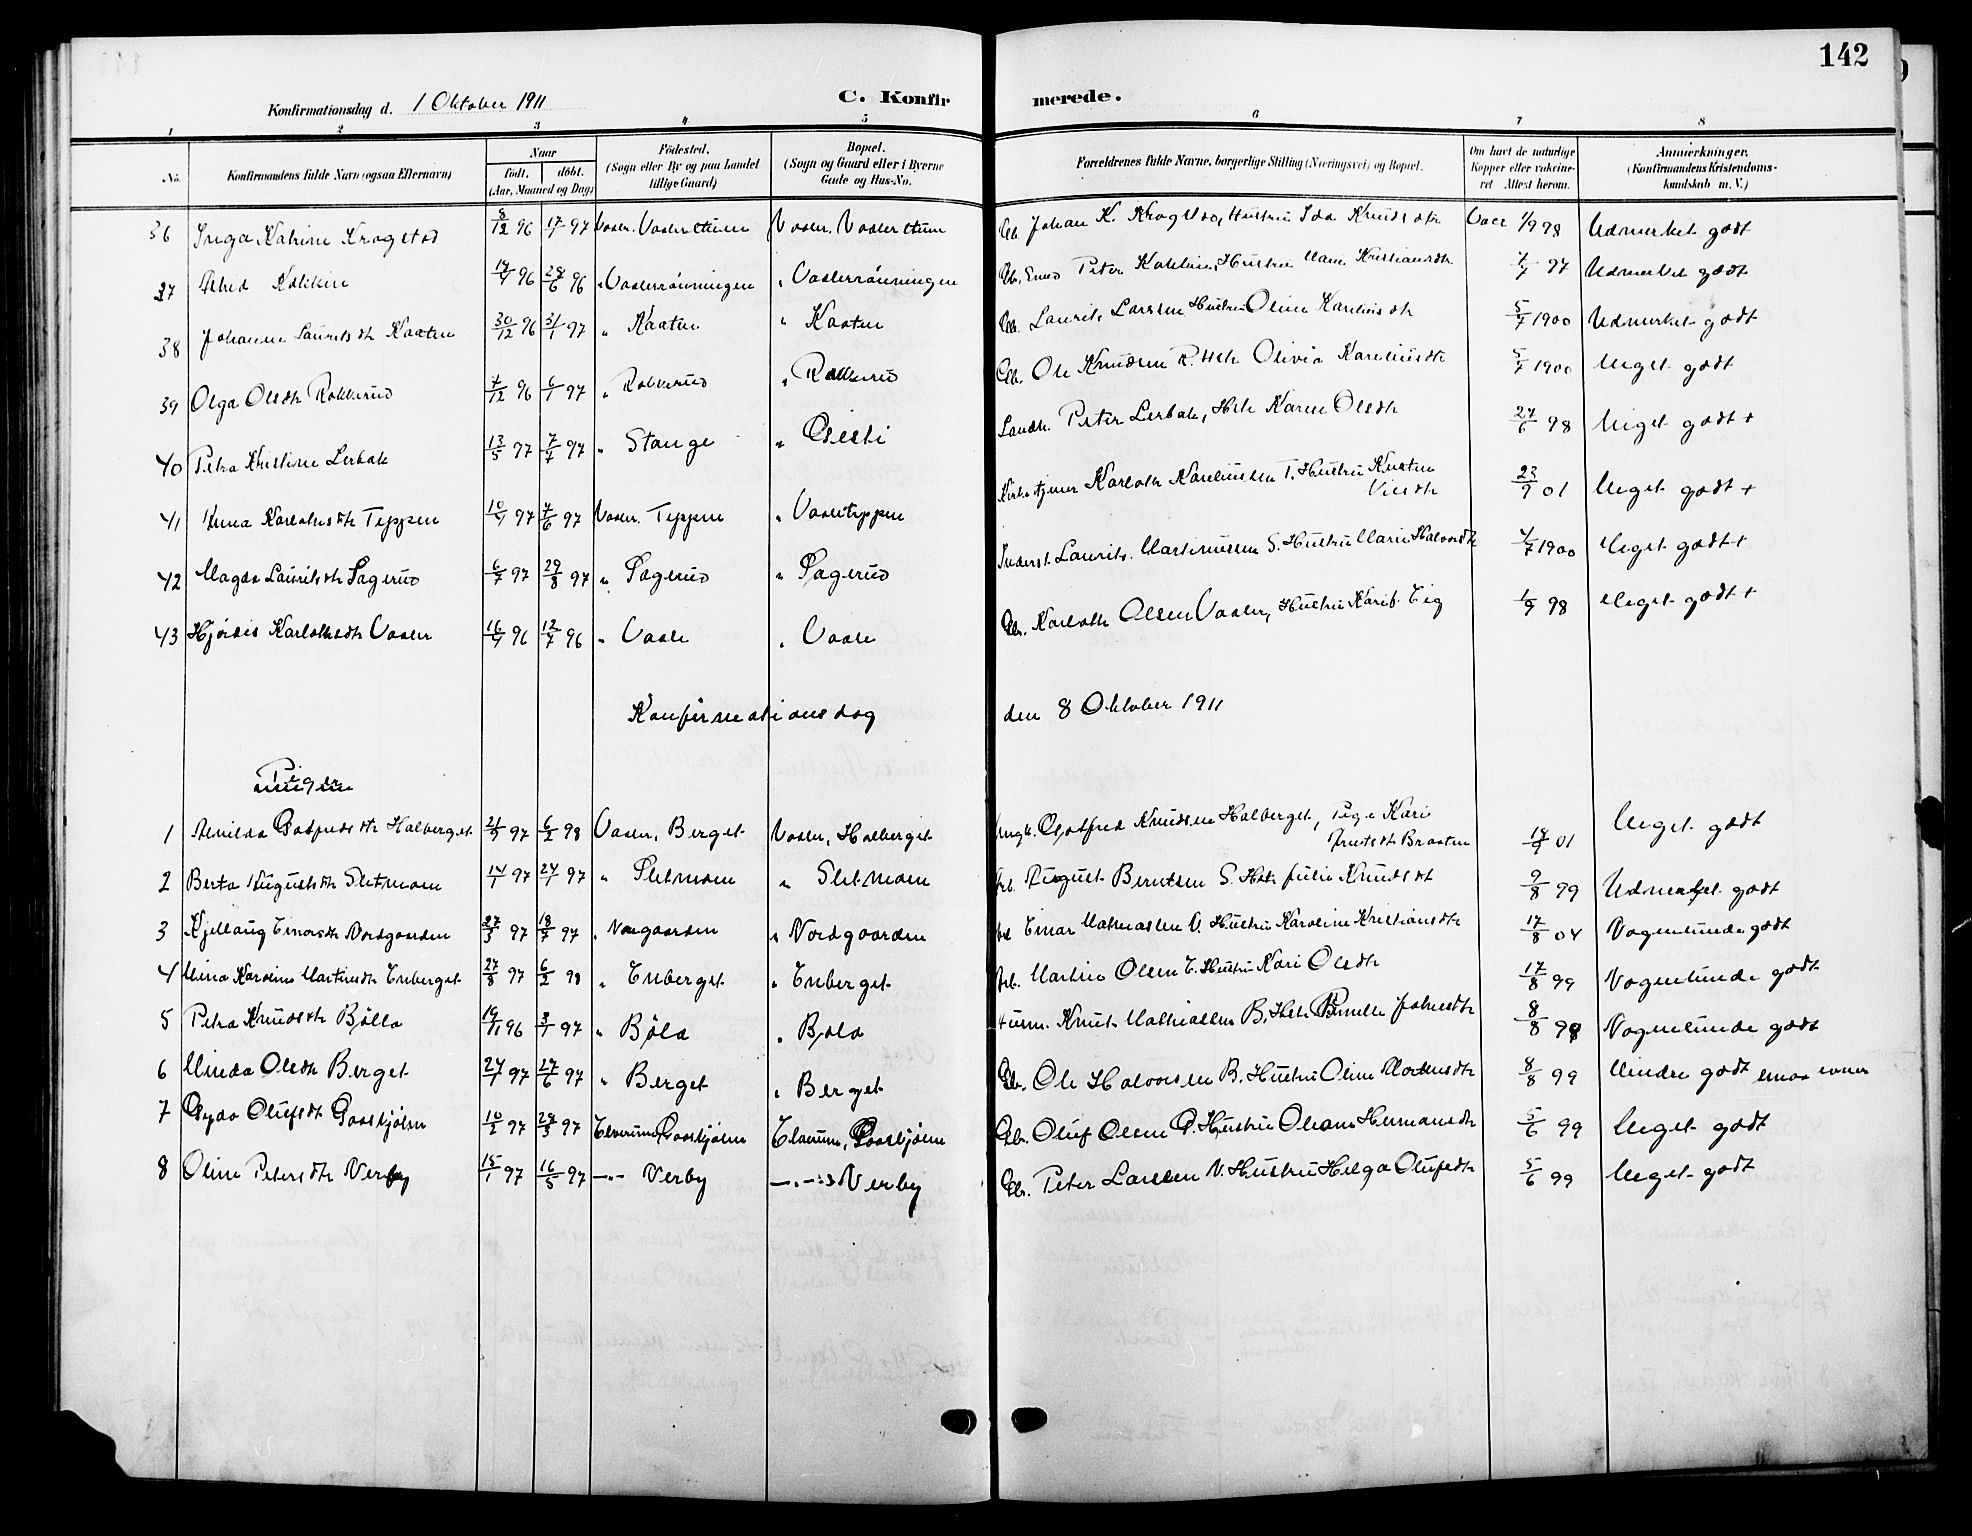 142
Konfirmationsdag d. 1 Oktober 1911 C. Konfirmerede.
1 2 3 4 5 6 7 8
No. Konfirmandens fulde Navn (ogsaa Efternavn) Naar födt. döbt. (Aar, Maaned og Dag) Födested. (Sogn eller By og paa Landet tillige Gaard) Bopæl. (Sogn og Gaard eller i Byerne Gade og Hus-No. Forældrenes fulde Navne, borgerlige Stilling (Næringsvei) og Bopæl. Om havt de naturlige Kopper eller vakcineret Attest herom. Anmærkninger. (Konfirmandens Kristendomskundskab m. V.)
36 Inga Katrine Krogstad 8/12 96 17/1 97 Vaaler. Vaalertunn Vaaler. Vaalertunn Johan K. Krogstad, Hustru Ida Knudsdtr Vacc 1/9 98 Udmerket godt
37 Kalikin 96 28/6 96 " Vaalerrönningen " Vaalerrönningen Peter Kalikin, Hustru Kristiansdtr 7/7 97 Udmerket godt
38 Johanne Lauritsdtr Kaaten 30/12 96 31/1 97 " Kaaten " Kaaten Laurits Larsen Hustru Oline Kareliusdtr 5/7 1900 Udmerket godt
39 Olga Olsdtr Rokkerud 7/12 96 6/1 97 " Rokkerud " Rokkerud Ole Knudsen R. Hstr Olivia Kareliusdtr 5/7 1900 Meget godt
40 Petra Kristine Lerbak 13/5 97 7/7 97 " Stange " Peter Lerbak, Hstr Karen Olsdtr 27/6 98 Meget godt +
41 Anna Karlotusdtr Teppen 97 7/6 97 Vaaler. Teppen " Vaalerteppen Kirketjener Kareliussen T. Hustru 23/9 01 Meget godt +
42 Magda Lauritsdtr Sagerud 6/7 97 29/8 97 " Sagerud " Sagerud Inderst Laurits Martinussen S. Hustru Marie Halvorsdtr 4/7 1900 Meget godt +
43 Hjördis Vaaler 16/4 96 12/7 96 " Vaale " Vaale Olsen Vaaler, Hustru Kari f. Eig 1/9 98 Meget godt +
Konfirmationsdag den 8 Oktober 1911
Piger
1 Godfredsdtr Halberget 97 6/2 98 Vaaler, Berget Vaaler, Halberget Ungk. Godfred Knudsen Halberget, Pige Kari
Braaten 01 Meget godt
2 Berta Augustsdtr Sletmoen 14/1 97 24/1 97 " Sletmoen " Sletmoen Arb. August Berntsen S. Hstr Julie Knudsdtr 9/8 99 Udmerket godt
3 Kjellaug Einarsdtr Nordgaarden 27/3 97 18/7 97 " Norgaarden " Nordgaarden Arb Einar Mathiassen N. Hustru Karoline Kristiansdtr 17/8 04 Nogenlunde godt
4 Mina Karoline Martinsdtr Enberget 27/8 97 6/2 98 " Enberget " Enberget Arb. Martin Olsen E. Hustru Kari Olsdtr 17/8 99 Nogenlunde godt
5 Petra Knudsdtr Bjölla 19/11 96 3/1 97 " Böla " Böla Knut Mathiassen B, Hstr Johnsdtr 8/8 Nogenlunde godt
6 Minda Olsdtr Berget 24/1 97 27/6 97 " Berget " Berget Ole Halvorsen B. Hustru Oline Mortensdtr 8/8 99 Mindre godt smaa evner
7 Gyda Olufsdtr Gaaskjölen 10/2 97 28/3 97 Elverum, Gaaskjölen Elverum, Gaaskjölen Oluf Olsen G. Hustru Oleane Hermansdtr 5/6 99 Meget godt
8 Oline Petersdtr Nerby 15/1 97 16/5 97 —"— Nerby —"— Nerby Peter Larsen N. Hustru Helga Olufsdtr 5/6 99 Meget godt